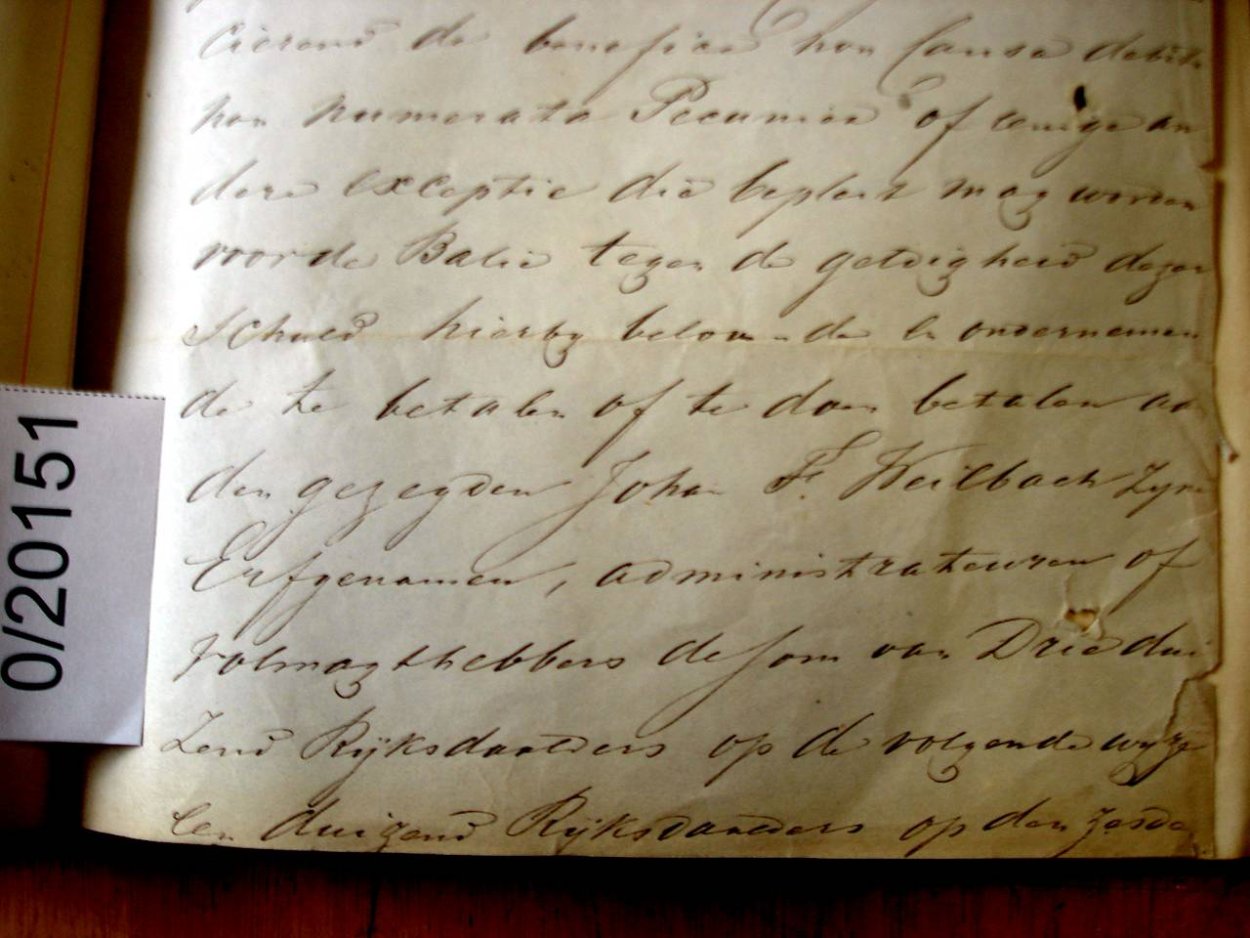 cierend de beneficie non causa debiti
non numerata Pecuniae of eenige an
dere exceptie die bepleit mag worden
voor de Balie tegen de geldigheid dezer
Schuld hierby belovende en ondernemen
de te betalen of te doen betalen aan
den gezegden Johan F Heilbach Zyne
Erfgenamen, administrateuren of
volmagthebbers de som van Drie dui
zend Rijksdaalders op de volgende wyze
Een duizend Rijksdaalders op den zesde
0/20151